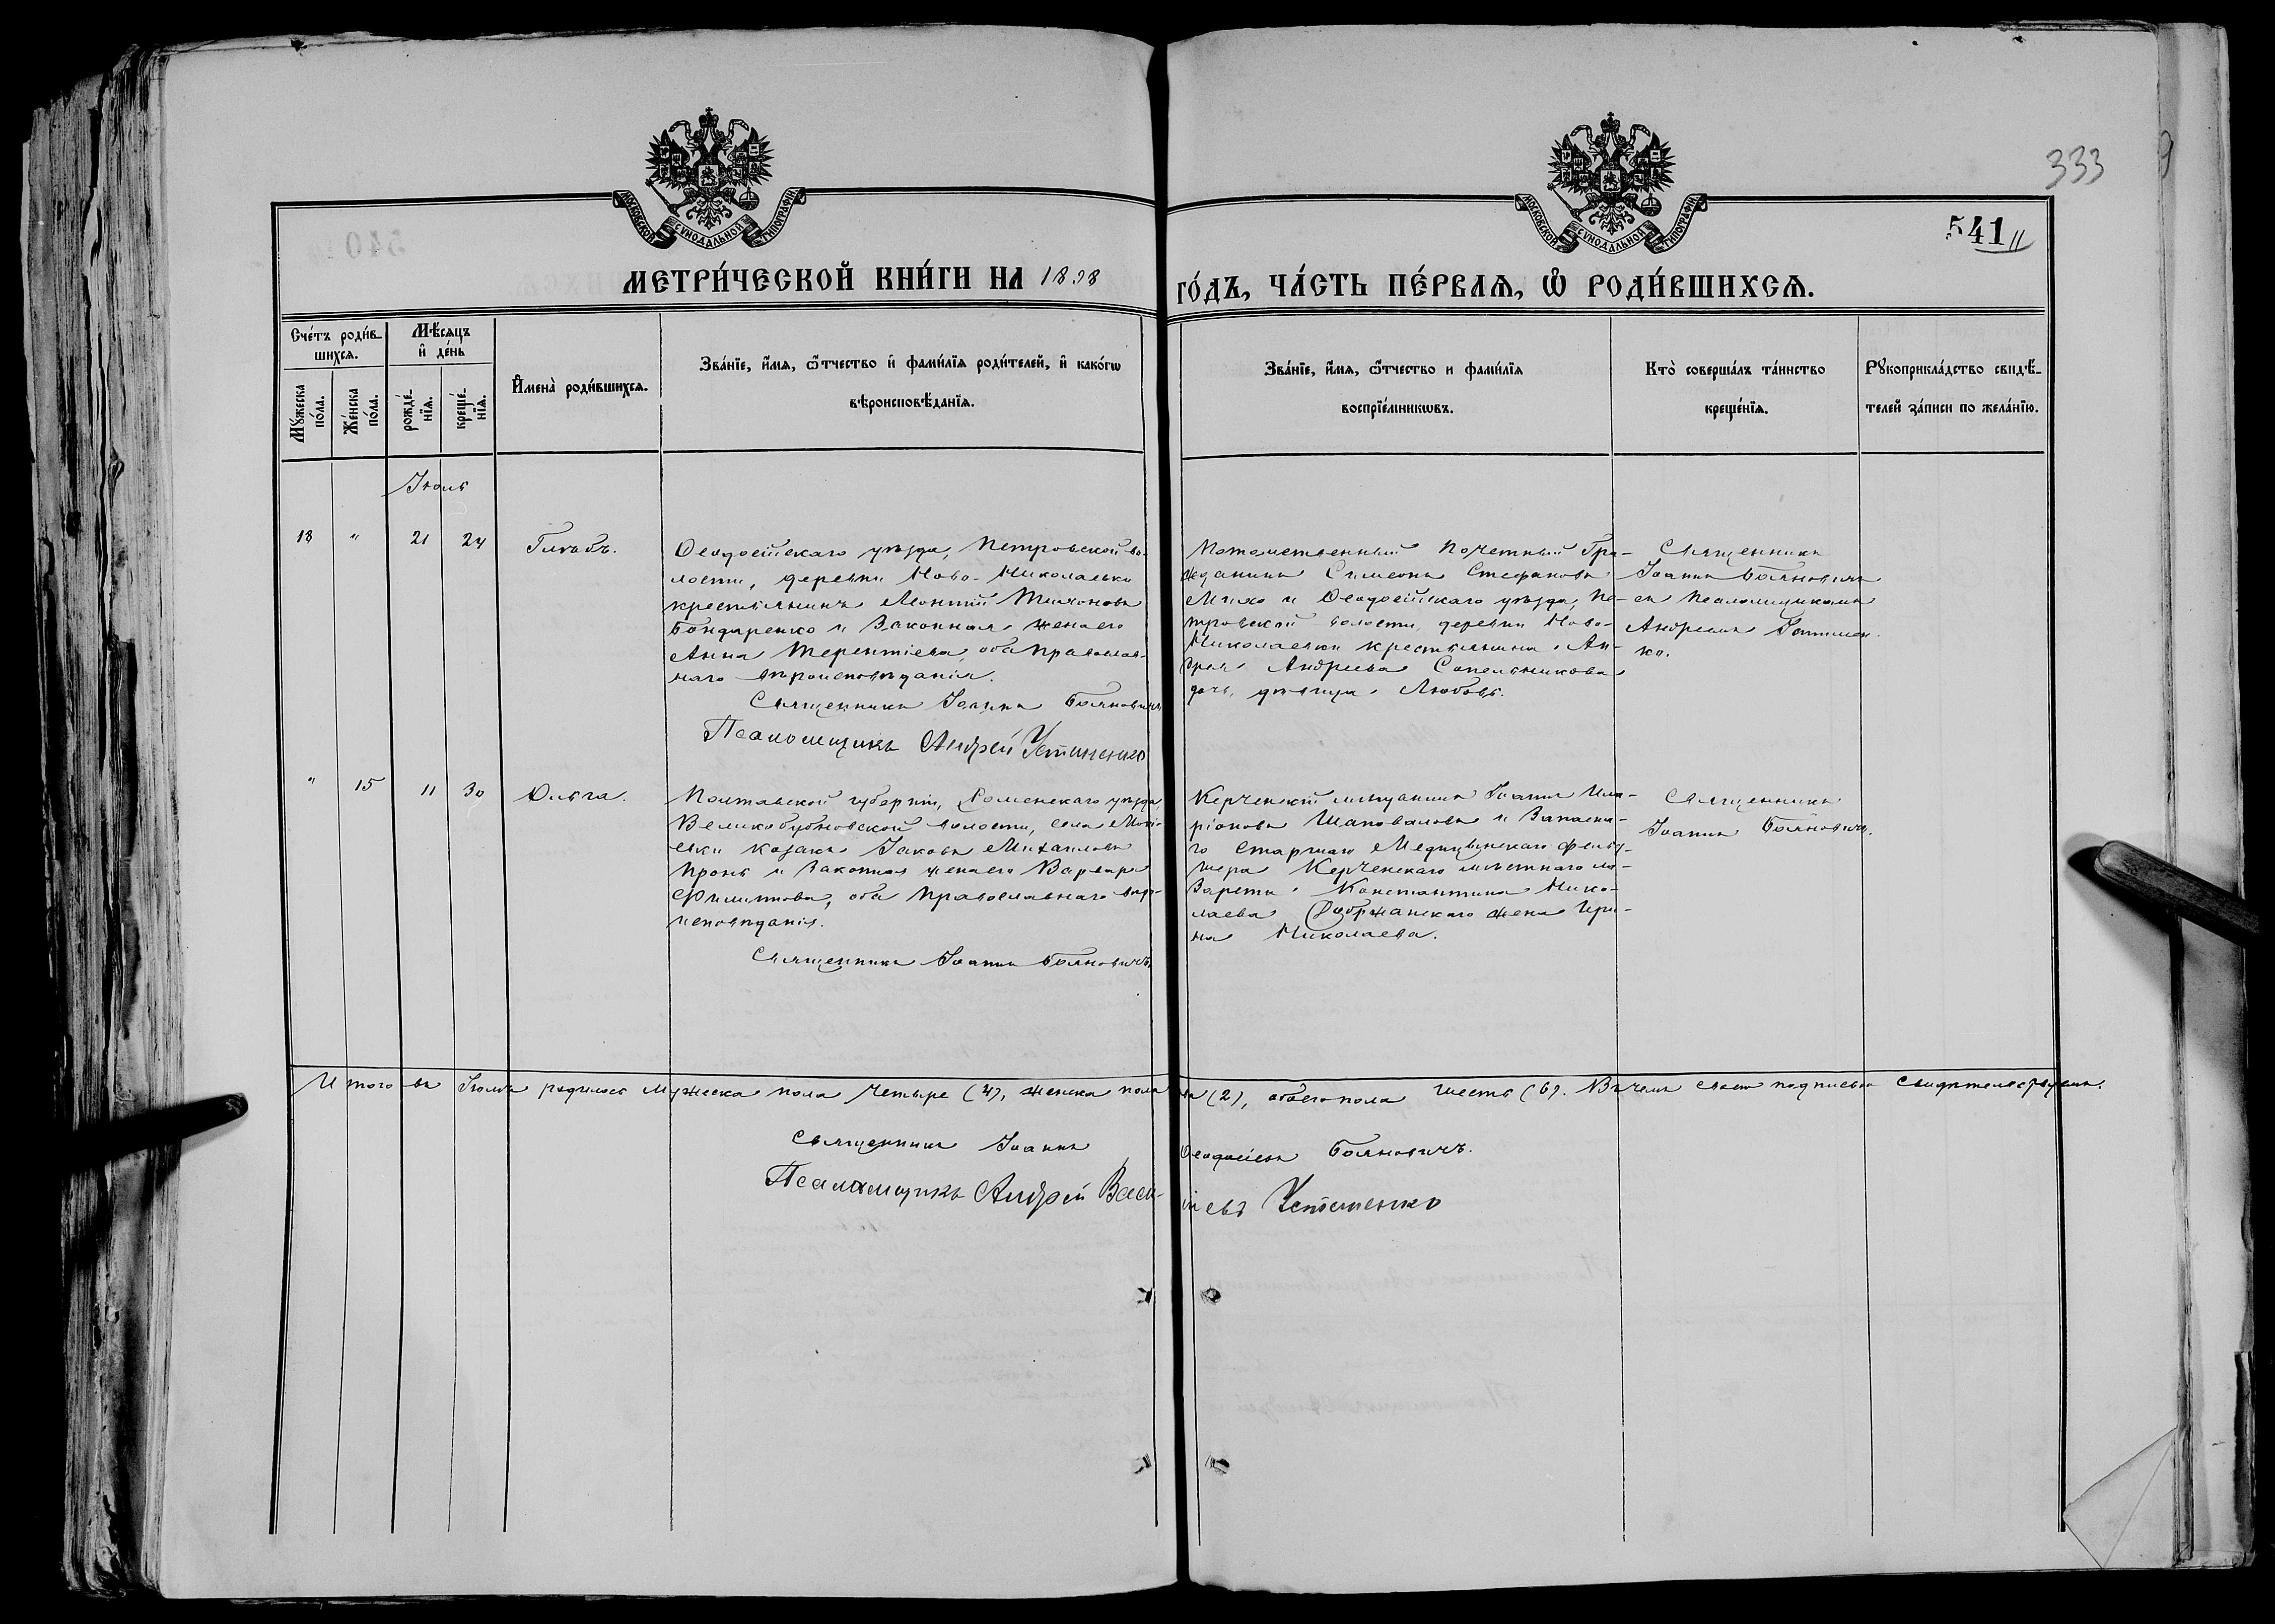 333
541
МОСКОВСКОЙ СѴНОДАЛЬНОЙ ТИПОГРАФІИ
МОСКОВСКОЙ СѴНОДАЛЬНОЙ ТИПОГРАФІИ
МЕТРИ́ЧЕСКОЙ КНИ́ГИ НА 1898 ГО́ДЪ, ЧА́СТЬ ПЕ́РВАЯ, Ѡ РОДИ́ВШИХСЯ.
Сче́тъ роди́в-
шихся.
Мꙋ́жеска по́ла.
Же́нска по́ла.
Мѣ́сяцъ
и де́нь
рожде́-
нїя.
креще́-
нїя.
Имена̀ роди́вшихся.
Зва́нїе, и́мя, ѻ́тчество и фами́лїя роди́телей, и како́гѡ
вѣроисповѣ́данїя.
Зва́нїе, и́мя, ѻ́тчество и фами́лїя
воспрїе́мникѡвъ.
Кто̀ соверша́лъ та́инство
креще́нїя.
Рꙋкоприкла́дство свидѣ́-
телей за́писи по жела́нїю.
Іюль
18 " 21 24 Глѣбъ.
Ѳеодосійскаго уѣзда, Петровской во-
лости, деревни Ново-Николаевки
крестьянинъ Леонтій Тихоновъ
Бондаренко и законная жена его
Анна Терентіева, оба православ-
наго вѣроисповѣданія.
Священникъ Іоаннъ Бояновичъ
Псаломщикъ Андрей Устименко
Потомственный Почетный Гра-
жданинъ Симеонъ Стефановъ
и Ѳеодосійскаго уѣзда, Пе-
тровской волости, деревни Ново-
Николаевки крестьянина Ан-
дрея Андреева Сопельникова
дочь, дѣвица Любовь.
Священникъ
Іоаннъ Бояновичъ
съ Псаломщикомъ
Андреемъ Устимен-
ко.
" 15 11 30 Ольга.
Полтавской губерніи, Роменскаго уѣзда,
Великобубновской волости, села
козакъ Іаковъ Михаиловъ
Пронь и законная жена его Варвара
Филиппова, оба православнаго вѣро-
исповѣданія.
Священникъ Іоаннъ Бояновичъ
Керченскій мѣщанинъ Іоаннъ Ила-
ріоновъ Шаповаловъ и Запасна-
го Старшаго Медицинскаго фельд-
шера Керченскаго мѣстнаго ла-
зарета Константина Нико-
лаева Добржанскаго жена Ири-
на Николаева.
Священникъ
Іоаннъ Бояновичъ.
Итого въ Іюлѣ родилось мужеска пола четыре (4), женска пола два (2), обоего пола шесть (6). Въ чемъ своею подписью свидѣтельствуемъ.
Священникъ Іоаннъ Ѳеодосіевъ Бояновичъ.
Псаломщикъ Андрей Васильевъ Устименко